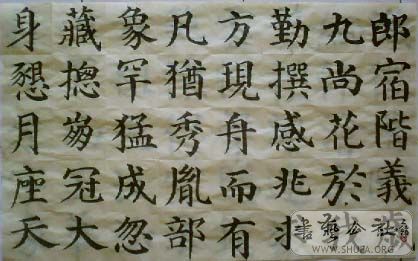 郎宿階義
九尚花於
勤撰感兆求
方現舟而有
凡猶秀胤部
象罕猛成忽
藏摠冠大
身懇月座天
WWW.SHUFA.ORG